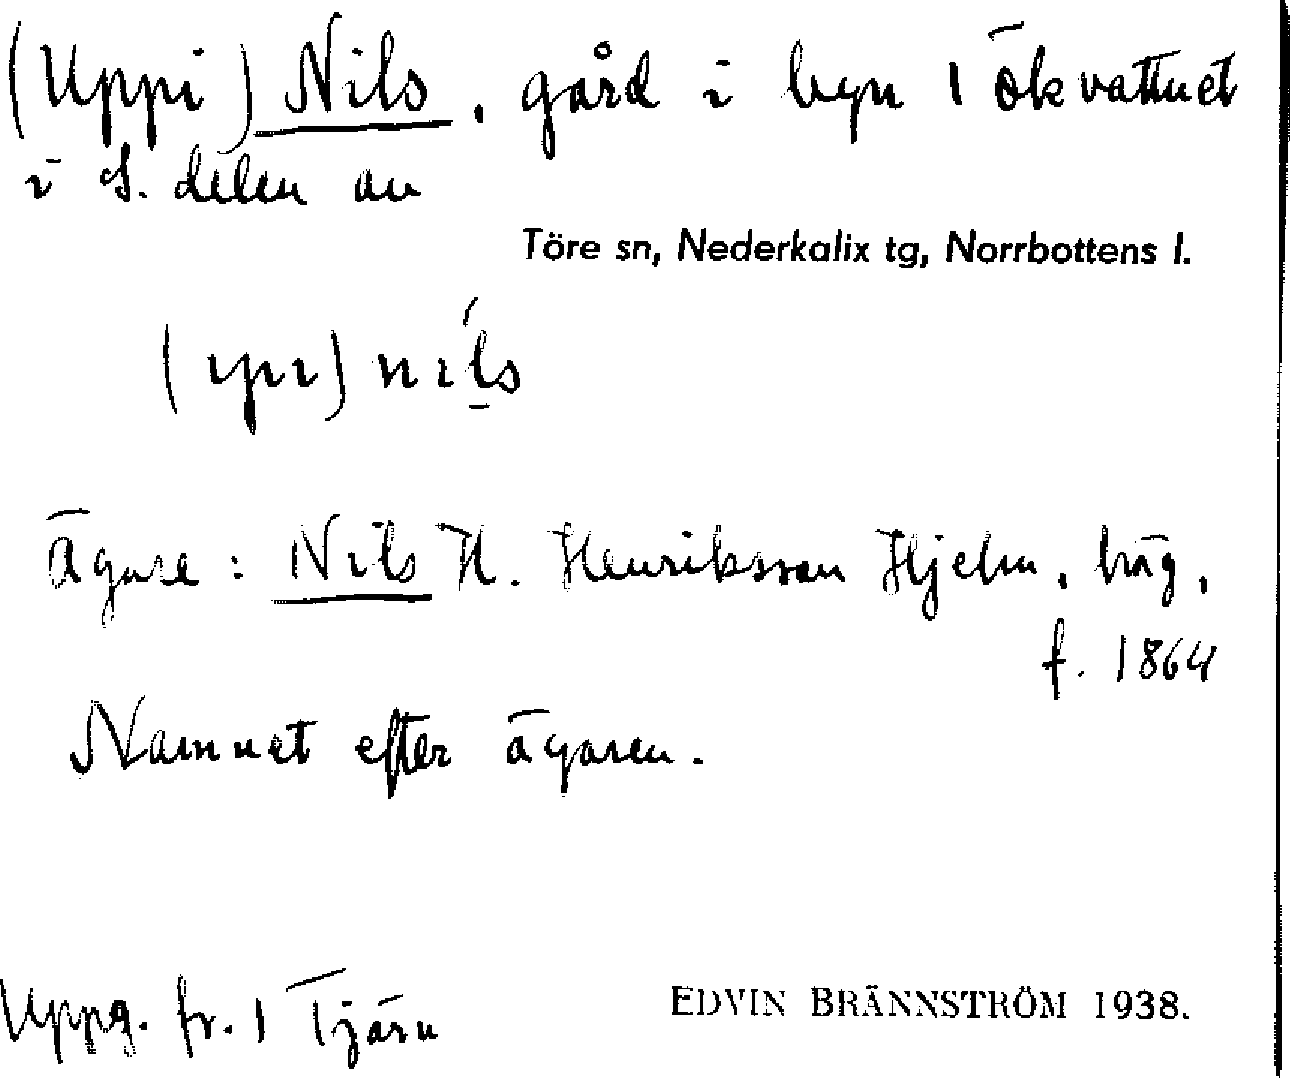 (Uppi) Nils, gård i byn 1 Ökvattnet
i S. delen av
Töre sn, Nederkalix tg, Norrbottens l.
(ypi) níls
Ägare: Nils H. Henriksson Hjelm,
f. 1864
Namnet efter ägaren.
Uppg. fr. 1 Tjärn
EDVIN BRÄNNSTRÖM 1938.